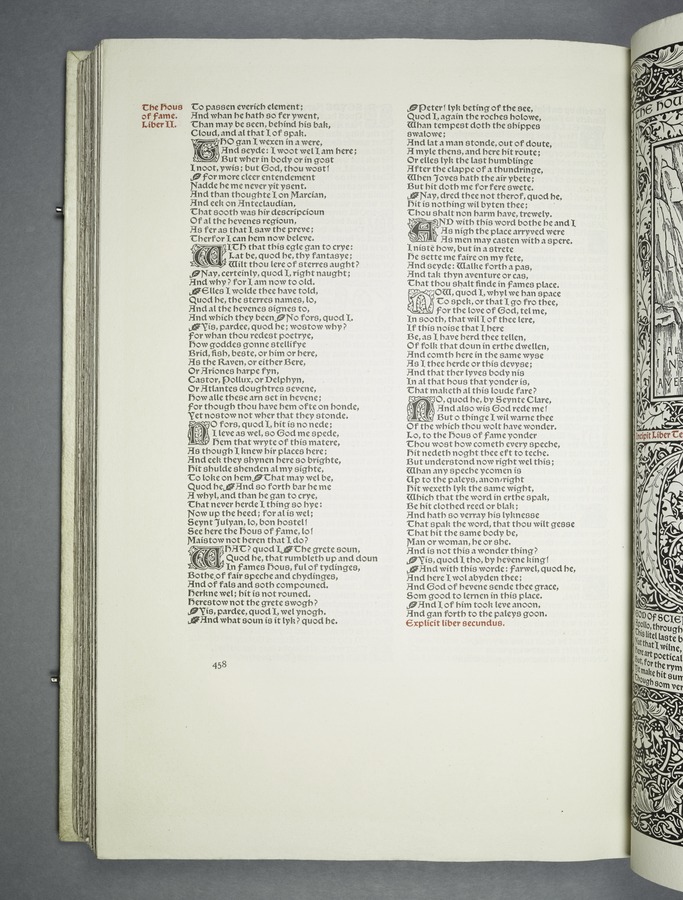 The Hous
of Fame.
Liber II.
To passen everich element;
And whan he hath so fer ywent,
Than may be seen, behind his bak,
Cloud, and al that I of spak.
THO gan I wexen in a were,
And seyde: I woot wel I am here;
But wher in body or in gost
I noot, ywis; but God, thou wost!
For more cleer entendement
Nadde he me never yit ysent.
And than thoughte I on Marcian,
And eek on Anteclaudian,
That sooth was hir descripcioun
Of al the hevenes regioun,
As fer as that I saw the preve;
Therfor I can hem now beleve.
WITH that this egle gan to crye:
Lat be, quod he, thy fantasye;
Wilt thou lere of sterres aught?
Nay, certeinly, quod I, right naught;
And why? for I am now to old.
Elles I wolde thee have told,
Quod he, the sterres names, lo,
And al the hevenes signes to,
And which they been. No fors, quod I.
Yis, pardee, quod he; wostow why?
For whan thou redest poetrye,
How goddes gonne stellifye
Brid, fish, beste, or him or here,
As the Raven, or either Bere,
Or Ariones harpe fyn,
Castor, Pollux, or Delphyn,
Or Atlantes doughtres sevene,
How alle these arn set in hevene;
For though thou have hem ofte on honde,
Yet nostow not wher that they stonde.
NO fors, quod I, hit is no nede;
I leve as wel, so God me spede,
Hem that wryte of this matere,
As though I knew hir places here;
And eek they shynen here so brighte,
Hit shulde shenden al my sighte,
To loke on hem. That may wel be,
Quod he. And so forth bar he me
A whyl, and than he gan to crye,
That never herde I thing so hye:
Now up the heed; for al is wel;
Seynt Julyan, lo, bon hostel!
See here the House of Fame, lo!
Maistow not heren that I do?
WHAT? quod I. The grete soun,
Quod he, that rumbleth up and doun
In Fames Hous, ful of tydinges,
Bothe of fair speche and chydinges,
And of fals and soth compouned.
Herkne wel; hit is not rouned.
Herestow not the grete swogh?
Yis, pardee, quod I, wel ynogh.
And what soun is it lyk? quod he.
Peter! lyk beting of the see,
Quod I, again the roches holowe,
Whan tempest doth the shippes
swalowe;
And lat a man stonde, out of doute,
A myle thens, and here hit route;
Or elles lyk the last humblinge
After the clappe of a thundringe,
When Joves hath the air ybete;
But hit doth me for fere swete.
Nay, dred thee not therof, quod he,
Hit is nothing wil byten thee;
Thou shalt non harm have, trewely.
AND with this word bothe he and I
As nigh the place arryved were
As men may casten with a spere.
I niste how, but in a strete
He sette me faire on my fete,
And seyde: Walke forth a pas,
And tak thyn aventure or cas,
That thou shalt finde in Fames place.
NOW, quod I, whyl we han space
To speke, or that I go fro thee,
For the love of God, tel me,
In sooth, that wil I of thee lere,
If this noise that I here
Be, as I have herd thee tellen,
Of folk that doun in erthe dwellen,
And comth here in the same wyse
As I thee herde or this devyse;
And that ther lyves body nis
In al that hous that yonder is,
That maketh al this loude fare?
NO, quod he, by Seynte Clare,
And also wis God rede me!
But o thinge I wil warne thee
Of the which thou wolt have wonder.
Lo, to the Hous of Fame yonder
Thou wost how cometh every speche,
Hit nedeth noght thee eft to teche.
But understond now right wel this;
Whan any speche ycomen is
Up to the paleys, anon right
Hit wexeth lyk the same wight,
Which that the word in erthe spak,
Be hit clothed reed or blak;
And hath so verray his lyknesse
That spak the word, that thou wilt gesse
That hit the same body be,
Man or woman, he or she.
And is not this a wonder thing?
Yis, quod I tho, by hevene king!
And with this worde: Farwel, quod he,
And here I wol abyden thee;
And God of hevene sende thee grace,
Som good to lernen in this place.
And I of him took leve anoon,
And gan forth to the paleys goon.
Explicit liber secundus.
458
HE HOU
Incipit Liber Te
OD OF SCIE
Apollo, through
This litel laste b
that I wilne,
here art poetical
But, for the rym
make hit sum
Though som ver